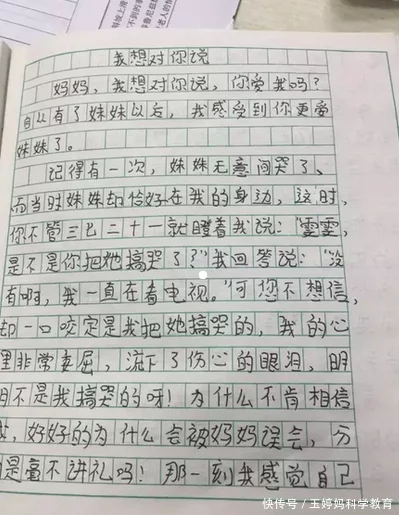 我想对你说
妈妈，我想对你说，你爱我吗？
自从有了妹妹以后，我感受到你更爱
妹妹了。
记得有一次，妹妹无意间哭了、
而当时妹妹却恰好在我的身边，这时，
你不管三七二十一就瞪着我说：“雯雯，
是不是你把她搞哭了？”我回答说：“没
有啊，我一直在看电视。”可您不想信，
却一口咬定是我把她搞哭的，我的心
里非常委屈，流下了伤心的眼泪，明
明不是我搞哭的呀！为什么不肯相信
，好好的为什么会被妈妈误会，分
是毫不讲礼吗！那一刻我感觉自己
快传号／玉婷妈科学教育